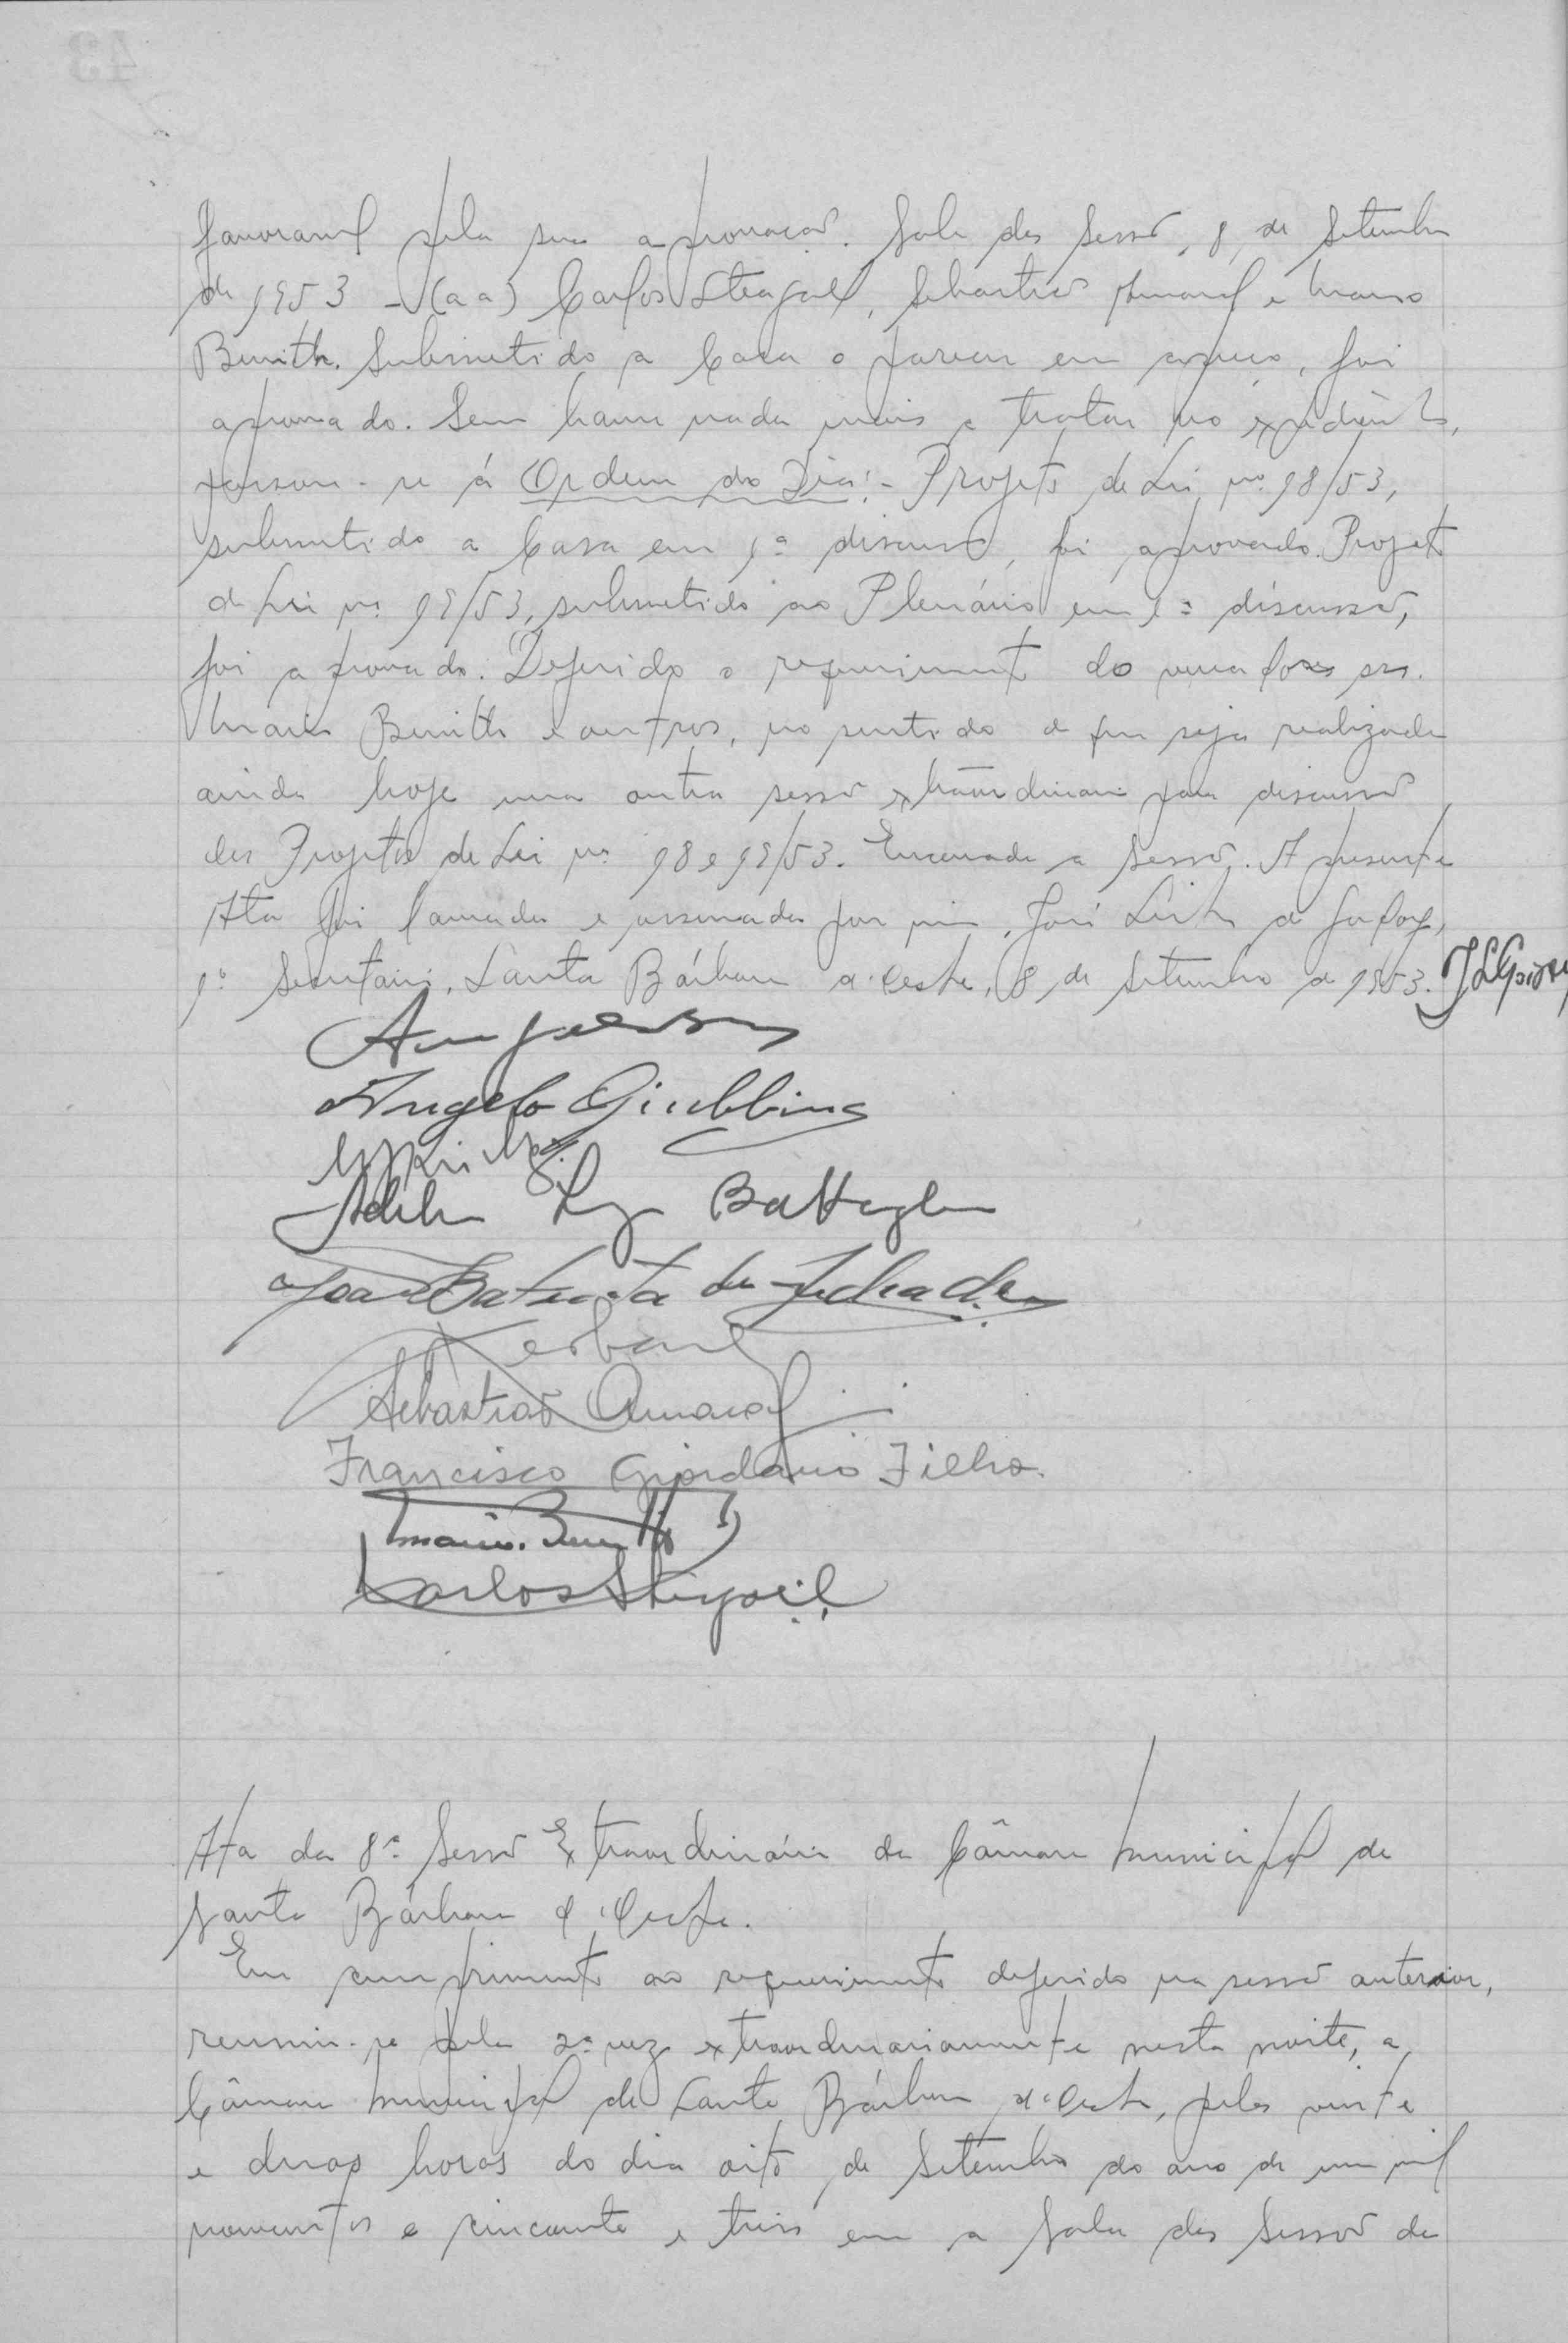 favoravel pela sua aprovação. Sala das Sessões, 8 de Setembro
de 1953 - (aa) Carlos Steagall, Sebastião Amaral e Mario
Benitti. Submetido a Casa o parecer em apreço, foi
aprovado. Sem haver nada mais a tratar no expediente,
passou-se á Ordem do Dia:- Projeto de Lei nº 18/53,
submetido a Casa em 1ª discussão, foi aprovado. Projeto
de Lei nº 19/53, submetido ao Plenário em 1ª discussão,
foi aprovado. Deferido o requerimento do vereadores srs.
Mario Benitti e outros, no sentido de que seja realizada
ainda hoje uma outra sessão extraordinaria para discussão
dos Projetos de Lei nº 18 e 19/53. Encerrada a sessão. A presente
Ata foi lavrada e assinada por mim, José Leite de Godoy,
1º Secretario. Santa Bárbara d'Oeste, 8 de Setembro de 1953. JLGodoy
Angelo Giubbina
Luiz Battaglia
João Batista de
Sebastião Amaral
Francisco Giordano Filho.
Mario Benitti
Carlos Steagall
Ata da 8ª Sessão Extraordinária da Câmara Municipal de
Santa Bárbara d'Oeste.
Em cumprimento ao requerimento deferido na sessão anterior,
reuniu-se pela 2ª vez extraordinariamente nesta noite, a
Câmara Municipal de Santa Bárbara d'Oeste, pelas vinte
e duas horas do dia oito de Setembro do ano de um mil
novecentos e cincoenta e treis em a Sala das Sessões da